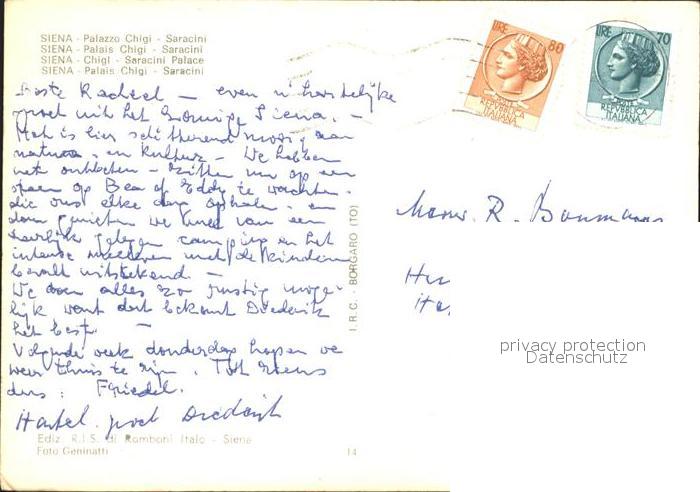 SIENA - Palazzo Chigi - Saracini
SIENA - Palais Chigi - Saracini
SIENA - Chigi - Saracini Palace
SIENA - Palais Chigi - Saracini
LIRE 80
POSTE
REPVBBLICA
ITALIANA
LIRE 70
POSTE
REPVBBLICA
ITALIANA
Beste Racheel — even 'n hartelijke
groet uit het zonnige Siena. —
Het is hier schitterend mooi aan
natuur en kultuur — We hebben
net ontbeten — zitten nu op een
steen op Bea of Eddy te wachten
die ons elke dag ophalen. en
dan genieten we van een
heerlijk gelegen camping en het
intense meeleven met de kinderen
bevalt uitstekend —
We doen alles zo rustig moge-
lijk want dat bekomt Diederik
het best. —
Volgende week donderdag hopen we
weer thuis te zijn. Tot ziens
dus: Friedel.
Hartel. groet Diederik
Mevr. R. Boumans
privacy protection
Datenschutz
I.R.C. - BORGARO (TO)
Ediz. R.I.S. di Romboni Italo - Siena
Foto Geninatti
14